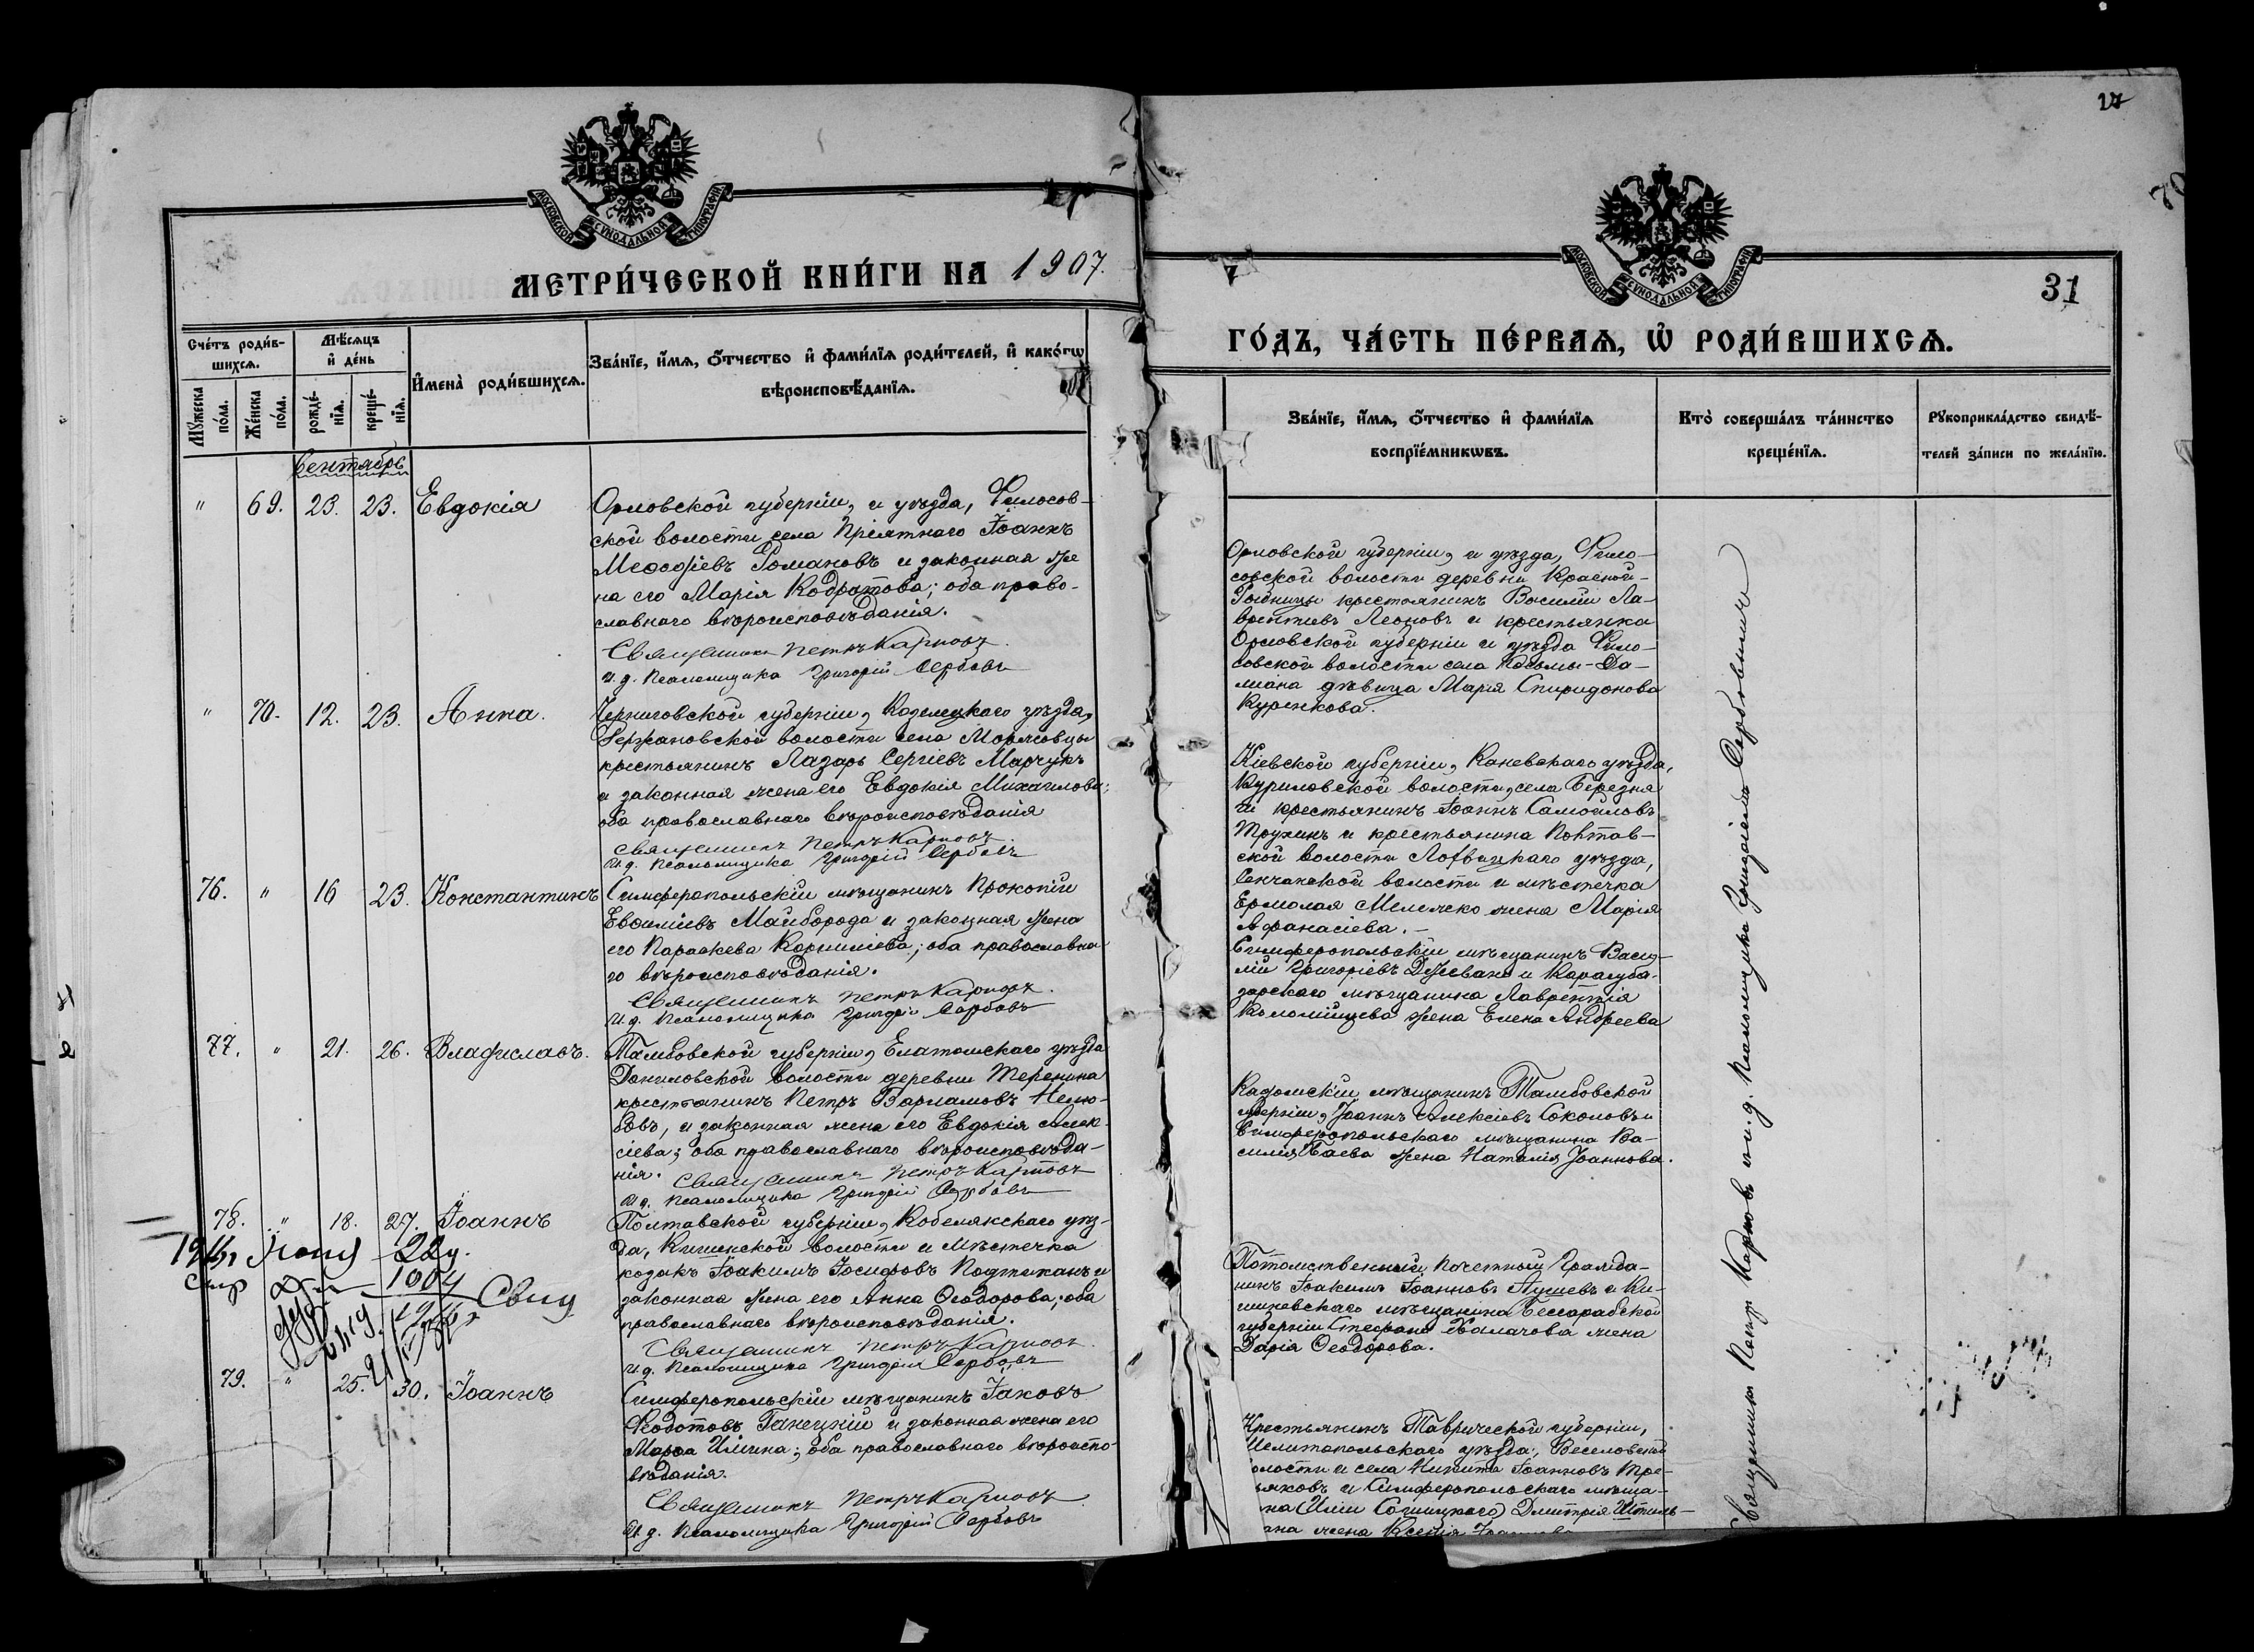 МОСКОВСКОЙ СУНОДАЛЬНОЙ ТИПОГРАФІИ
МЕТРИ́ЧЕСКОЙ КНИ́ГИ НА 1907.
Сче́тъ роди́в-
шихсѧ.
Мꙋ́жеска по́ла.
Же́нска по́ла.
Мѣ́сѧцъ
и҆ де́нь
рожде́-
нїѧ.
креще́-
нїѧ.
И҆мена̀ роди́вшихсѧ.
Зва́нїе, и҆́мѧ, ѻ҆́тчество и҆ фами́лїѧ роди́телей, и҆ како́гѡ
вѣроисповѣ́данїѧ.
Сентябрь
" 69. 23. 23. Евдокія
Орловской губерніи, и уѣзда, Филосов-
ской волости села Пріятнаго Іоаннъ
Меѳодіевъ Романовъ и законная же
на его Марія Кодратова; оба право-
славнаго вѣроисповѣданія.
Священникъ Петръ Карповъ.
И. д. Псаломщика Григорій Сербовъ
" 70. 12. 23. Анна.
Черниговской губерніи, Козелецкаго уѣзда,
волости села
крестьянинъ Лазарь Сергіевъ Марчукъ
и законная жена его Евдокія Михаилова;
оба православнаго вѣроисповѣданія
Священникъ Петръ Карповъ.
И. д. Псаломщика Григорій Сербовъ
76. " 16 23. Константинъ
Симферопольскій мѣщанинъ Прокопій
Евѳиміевъ Майборода и законная жена
его Параскева Корниліева; оба православна
го вѣроисповѣданія.
Священникъ Петръ Карповъ.
И. д. Псаломщика Григорій Сербовъ
77. " 21. 26. Владиславъ.
Тамбовской губерніи, Елатомскаго уѣзда
Даниловской волости деревни Теренина
крестьянинъ Петръ Варламовъ Нелю-
бовъ, и законная жена его Евдокія Алек-
сіева; оба православнаго вѣроисповѣда-
нія. Священникъ Петръ Карповъ
И. д. Псаломщика Григорій Сербовъ
78. " 18. 27. Іоаннъ
Полтавской губерніи, Кобелякскаго уѣз-
да, Кишенской волости и мѣстечка
козакъ Іоакимъ Іосифовъ и
законная жена его Анна Ѳеодорова; оба
православнаго вѣроисповѣданія.
Священникъ Петръ Карповъ.
И. д. Псаломщика Григорій Сербовъ
22
1004
79. " 25. 30. Іоаннъ
Симферопольскій мѣщанинъ Іаковъ
Ганецкій и законная жена его
Марѳа Ильина; оба православнаго вѣроиспо-
вѣданія.
Священникъ Петръ Карповъ
И. д. Псаломщика Григорій Сербовъ
МОСКОВСКОЙ СУНОДАЛЬНОЙ ТИПОГРАФІИ
31
ГО́ДЪ, ЧА́СТЬ ПЕ́РВАѦ, Ѡ҆ РОДИ́ВШИХСѦ.
Зва́нїе, и҆́мѧ, ѻ҆́тчество и҆ фами́лїѧ
воспрїе́мникѡвъ.
Кто̀ соверша́лъ та́инство
креще́нїѧ.
Рꙋкоприкла́дство свидѣ́-
телей за́писи по жела́нїю.
Орловской губерніи, и уѣзда, Фило-
совской волости деревни Красной-
Рыбницы крестьянинъ Василій Ла-
врентіевъ Леоновъ и крестьянка
Орловской губерніи и уѣзда Фило-
совской волости села Козьмы-Да-
міана дѣвица Марія Спиридонова
Куренкова.
Кіевской губерніи, Каневскаго уѣзда,
Куриловской волости, села Березня
ги крестьянинъ Іоаннъ Самойловъ
и крестьянина Полтав-
ской волости Лохвицкаго уѣзда,
Сенчанской волости и мѣстечка
Ермолая жена Марія
Афанасіева.-
Симферопольскій мѣщанинъ Васи-
лій Григоріевъ и Карасуба-
зарскаго мѣщанина Лаврентія
Коломийцева жена Елена Андреева
Кадомскій мѣщанинъ Тамбовской
губерніи, Іоаннъ Алексіевъ Соколовъ и
Симферопольскаго мѣщанина Ва-
силія Баева жена Наталія Іоаннова.
Потомственный Почетный Гражда-
нинъ Іоакимъ Іоанновъ и Ки-
шиневскаго мѣщанина Бессарабской
губерніи Стефана жена
Дарія Ѳеодорова.
Крестьянинъ Таврической губерніи,
Мелитопольскаго уѣзда, Веселовской
волости и села Никита Іоанновъ Тре-
тьяковъ и Симферопольскаго мѣща-
на Дмитрія
жена Ксенія
Священникъ Петръ Карповъ и и. д. Псаломщика Григорій Сербовъ